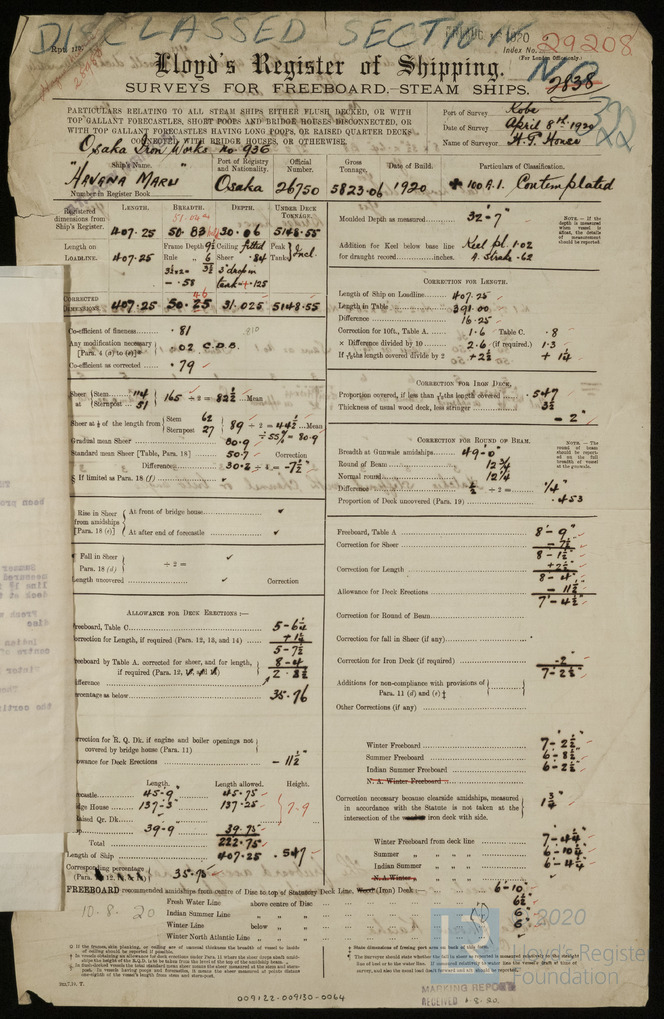 DISCLASSED SECTION
Rpt. 11B.
1920
Index No. 29208
(For London Office only.)
Lloyd's Register of Shipping.
No 2838
SURVEYS FOR FREEBOARD.—STEAM SHIPS.
322
PARTICULARS RELATING TO ALL STEAM SHIPS EITHER FLUSH DECKED, OR WITH
TOP GALLANT FORECASTLES, SHORT POOPS AND BRIDGE HOUSES DISCONNECTED, OR
WITH TOP GALLANT FORECASTLES HAVING LONG POOPS, OR RAISED QUARTER DECKS
CONNECTED WITH BRIDGE HOUSES, OR OTHERWISE.
Port of Survey Kobe
Date of Survey April 8th 1920
Name of Surveyor H. G. House
Osaka Iron Works No 936
Ship's Name. Port of Registry and Nationality. Official Number. Gross Tonnage. Date of Build. Particulars of Classification.
"HAVANA MARU" Osaka 26750 5823.06 1920 100 A.1. Contemplated
Number in Register Book
LENGTH. BREADTH. DEPTH. UNDER DECK TONNAGE.
Registered dimensions from Ship's Register.
407.25 50.83 30.06 5148.55
Length on LOADLINE. 407.25
Frame Depth 9½ Ceiling fitted Peak Tanks Incl.
Rule 6 Sheer .84
3½ 3" drop in
- .58 tank + .125
CORRECTED DIMENSIONS 407.25 50.25 31.025 5148.55
Moulded Depth as measured 32'-7"
NOTE.—If the depth is measured when vessel is afloat, the details of measurement should be reported.
Addition for Keel below base line for draught record inches. Keel pl. 1.02
A. Strake .62
Co-efficient of fineness .81
Any modification necessary [Para. 4 (a) to (e)] .02 C.D.B.
Co-efficient as corrected .79
CORRECTION FOR LENGTH.
Length of Ship on Loadline 407.25
Length in Table 391.00
Difference 16.25
Correction for 10ft., Table A. 1.6 Table C. .8
× Difference divided by 10 2.6 (if required.) 1.3
If 6/10ths length covered divide by 2 + 2½ + 1¼
Sheer at Stem 114 Sternpost 51 165 ÷ 2 = 82½ Mean
Sheer at ⅛ of the length from Stem 62 Sternpost 27 89 ÷ 2 = 44½ Mean
÷ 55% = 80.9
Gradual mean Sheer 80.9
Standard mean Sheer [Table, Para. 18] 50.7 Correction
Difference 30.2 ÷ 4 = -7½"
§ If limited as Para. 18 (f)
CORRECTION FOR IRON DECK.
Proportion covered, if less than 7/10ths length covered .547
Thickness of usual wood deck, less stringer 3½
- 2"
CORRECTION FOR ROUND OF BEAM.
Breadth at Gunwale amidships 49'-0"
Round of Beam 12¾
Normal round 12¼
Difference ½ ÷ 2 = ¼"
Proportion of Deck uncovered (Para. 19) .453
NOTE.—The round of beam should be reported on the full breadth of vessel at the gunwale.
Rise in Sheer from amidships [Para. 18 (e)]
At front of bridge house
At after end of forecastle
Fall in Sheer Para. 18 (d) ÷ 2 =
Length uncovered Correction
Freeboard, Table A 8'-9"
Correction for Sheer - 7½
8-1½"
Correction for Length + 2½
8-4"
Allowance for Deck Erections - 11½
7'-4½"
Correction for Round of Beam
Correction for fall in Sheer (if any)
Correction for Iron Deck (if required) -2"
7-2½"
Additions for non-compliance with provisions of Para. 11 (d) and (e)
Other Corrections (if any)
ALLOWANCE FOR DECK ERECTIONS :—
Freeboard, Table C 5-6¼
Correction for Length, if required (Para. 12, 13, and 14) + 1¼
5-7½
Freeboard by Table A. corrected for sheer, and for length, if required 8-4
Difference 2.8½
Percentage as below 35.76
Correction for R. Q. Dk. if engine and boiler openings not covered by bridge house (Para. 11)
Allowance for Deck Erections - 11½"
Winter Freeboard 7-2½"
Summer Freeboard 6-8½
Indian Summer Freeboard 6-2½
N. A. Winter Freeboard
Correction necessary because clearside amidships, measured in accordance with the Statute is not taken at the intersection of the iron deck with side. 1¾"
Length. Length allowed. Height.
Forecastle 45-9" 45.75
Bridge House 137-3" 137.25 7-9
Raised Qr. Dk.
39-9 39.75
Total 222.75
Length of Ship 407.25 .547
Corresponding percentage 35.76
Winter Freeboard from deck line 7-4¼
Summer „ „ „ 6-10¼
Indian Summer „ „ „ 6-4¼
N.A.Winter
FREEBOARD recommended amidships from Centre of Disc to top of Statutory Deck Line, (Iron) Deck: 6-10"
Fresh Water Line above centre of Disc 6½
Indian Summer Line „ „ 6"
Winter Line below „ 6
Winter North Atlantic Line „ „
10.8.20
2020
Lloyd's Register
Foundation
MARKING REPORT
RECEIVED
009122-009130-0064